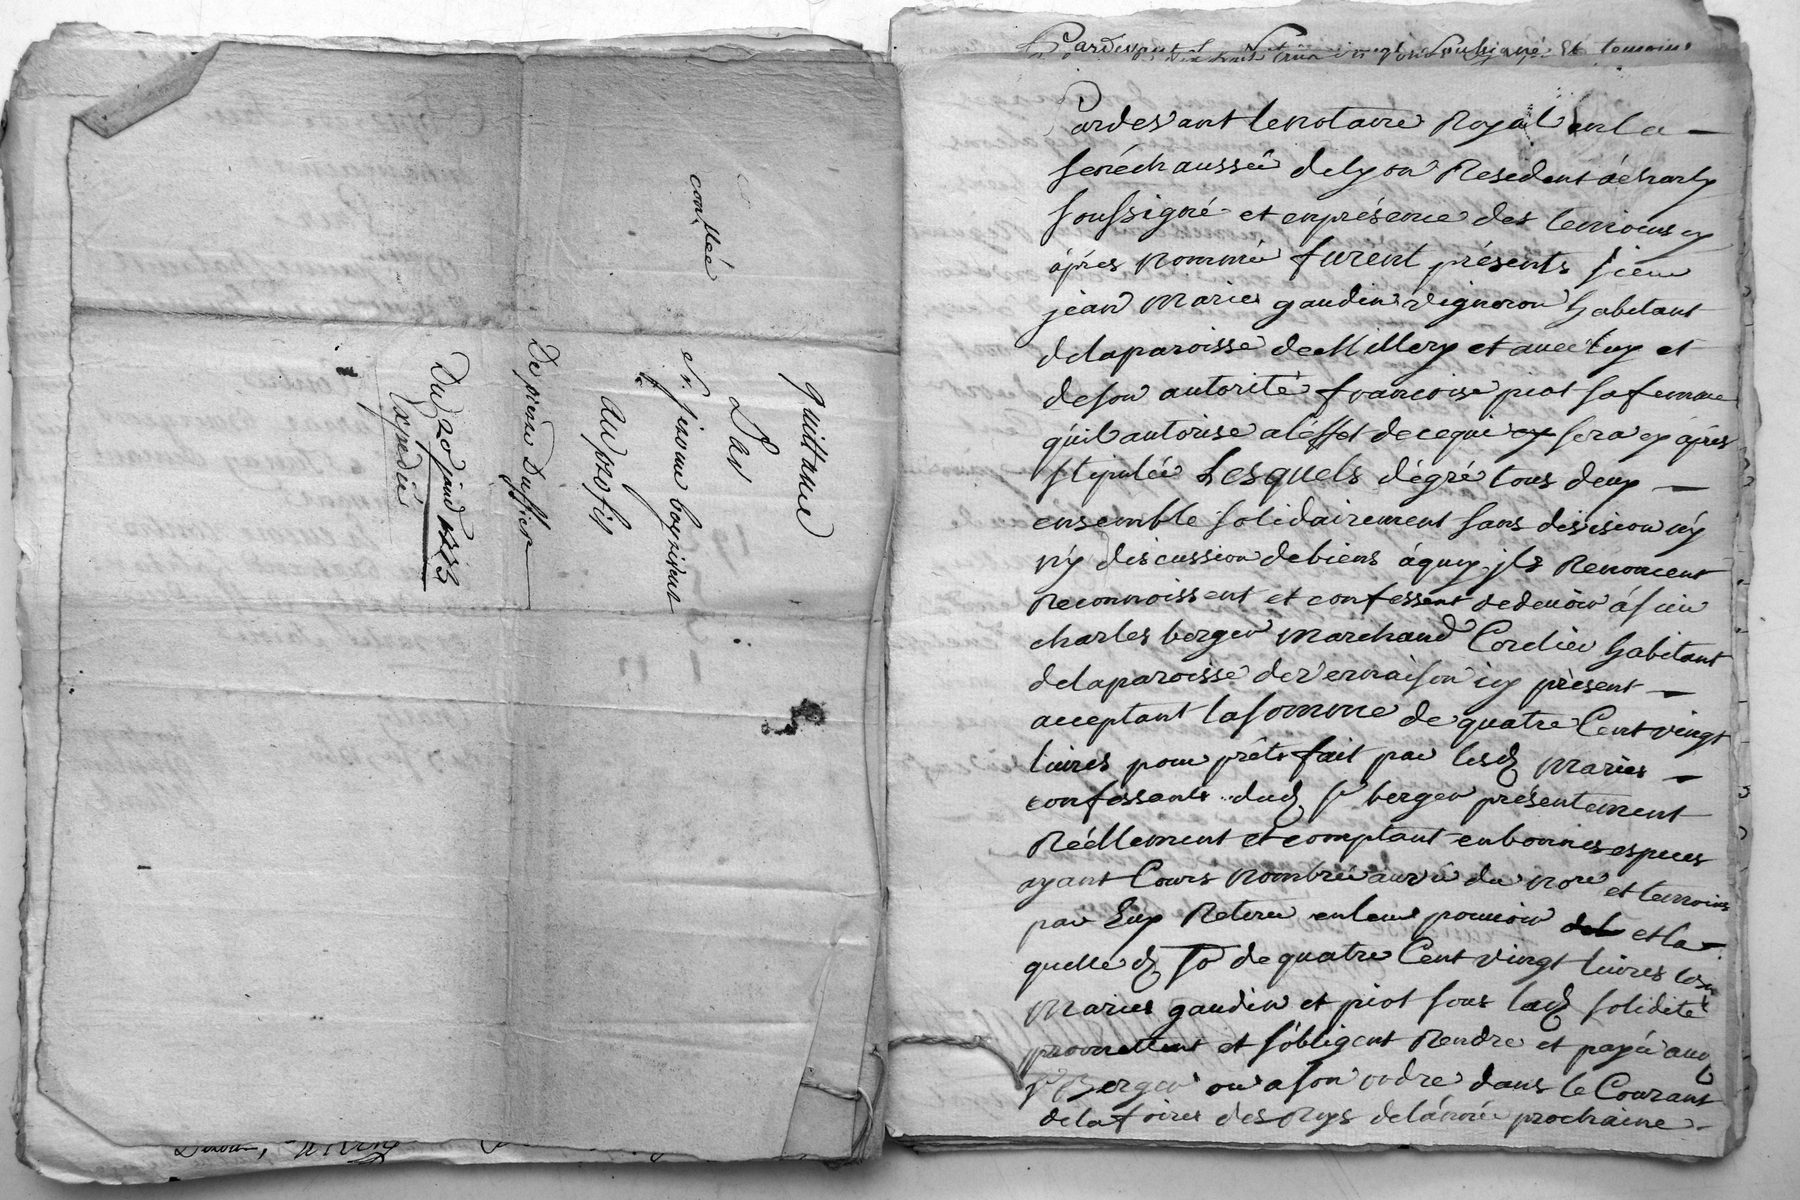 contllée
quittance
Par
Sr. jerome boyrivent
au profit
De pierre Duffier
Du 20 juin
Expediée
Pardevant le no.re soussigné et temoins
Pardevant lenotaire Royal enla
senéchaussée delyon Resident àcharly
soussigné et enprésence des temoins cy
après nommé furent présents sieur
jean marie gaudin vigneron habitant
delaparoisse demillery et avecluy et
deson autorité francoise piot safemme
quil autorise aleffet decequi cy sera cy après
stipulée Lesquels dégré tous deux
ensemble solidairement sans division ny
ny discussion debiens àquoy jls Renoncent
Reconnoissent et confessent dedevoir àsieur
charles berger marchand Cordier habitant
delaparoisse devernaison icy présent
acceptant lasomme de quatre Cent vingt
livres pour prêt fait par lesd maries
confessants dud sr berger présentement
Réellement et comptant enbonnes especes
ayant Cours nombrée auvû du no.re et temoins
par Eux Retirée enleur pouvoir et la
quelle d so de quatre Cent vingt livres lesd
maries gaudin et piot sous lad solidité
promettent et sobligent Rendre et payer aud
sr Berger ou ason ordre dans le Courant
delafoire des Roys delannée prochaine